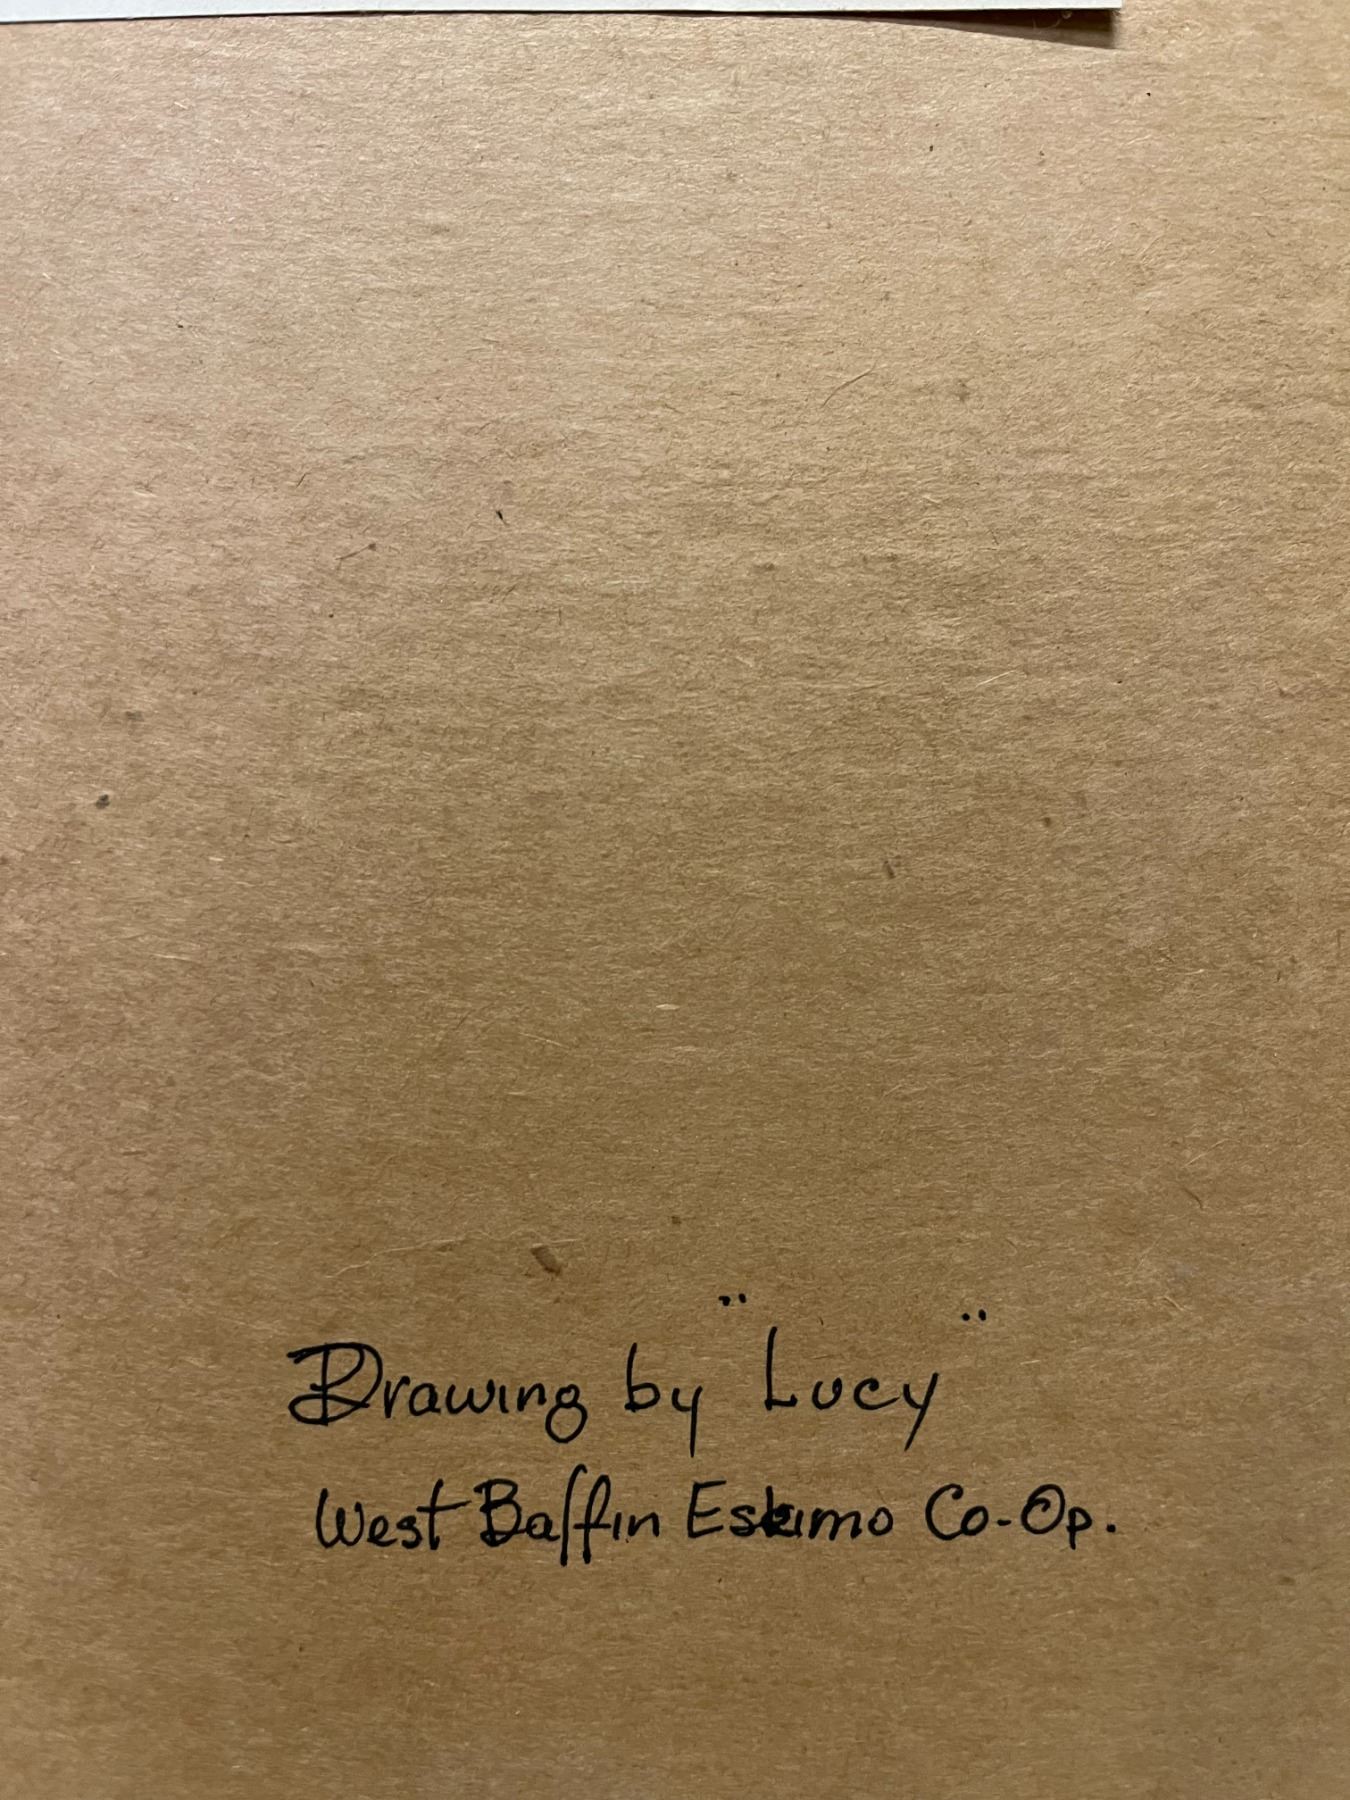 Drawing by "Lucy"
West Baffin Eskimo Co-Op.